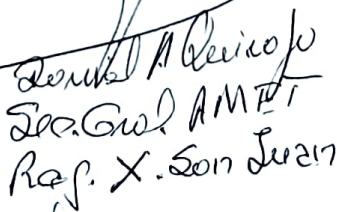 A Quiroga
Sec. Gral. AMET
Reg. X. San Juan